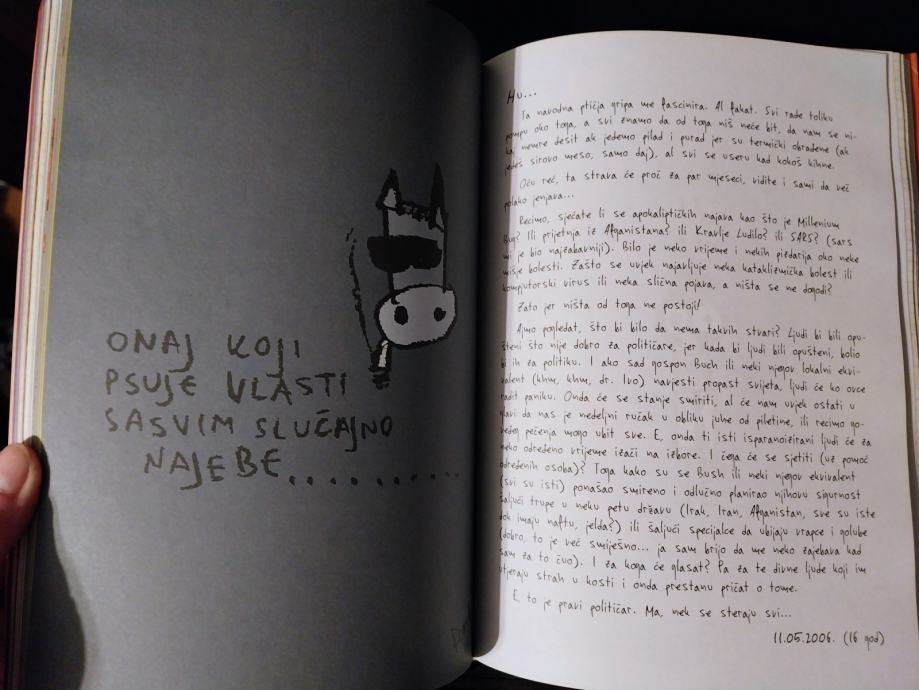 ONAJ KOJI
PSUJE VLASTI
SASVIM SLUČAJNO
NAJEBE............
Hu...
Ta navodna ptičja gripa me fascinira. Al fakat. Svi rade toliku
pompu oko toga, a svi znamo da od toga niš neće bit, da nam se ni-
kaj nemre desit ak jedemo pilad i purad jer su termički obrađene (ak
jedeš sirovo meso, samo daj), al svi se useru kad kokoš kihne.
Oću reć, ta strava će proć za par mjeseci, vidite i sami da već
polako jenjava...
Recimo, sjećate li se apokaliptičkih najava kao što je Millenium
Bug? Ili prijetnja iz Afganistana? ili Kravlje Ludilo? ili SARS? (sars
mi je bio najzabavniji). Bilo je neko vrijeme i nekih pizdarija oko neke
mišje bolesti. Zašto se uvjek najavljuje neka kataklizmička bolest ili
kompjutorski virus ili neka slična pojava, a ništa se ne dogodi?
Zato jer ništa od toga ne postoji!
Ajmo pogledat, što bi bilo da nema takvih stvari? Ljudi bi bili opu-
šteni što nije dobro za političare, jer kada bi ljudi bili opušteni, bolio
bi ih za politiku. I ako sad gospon Buch ili neki njegov lokalni ekvi-
valent (khm, khm, dr. Ivo) navjesti propast svijeta, ljudi će ko ovce
radit paniku. Onda će se stanje smiriti, al će nam uvjek ostati u
glavi da nas je nedeljni ručak u obliku juhe od piletine, ili recimo go-
veđeg pečenja mogo ubit sve. E, onda ti isti isparanoizirani ljudi će za
neko određeno vrijeme izaći na izbore. I čega će se sjetiti (uz pomoć
određenih osoba)? Toga kako su se Bush ili neki njegov ekvivalent
(svi su isti) ponašao smireno i odlučno planirao njihovu sigurnost
šaljući trupe u neku petu državu (Irak, Iran, Afganistan, sve su iste
dok imaju naftu, jelda?) ili šaljući specijalce da ubijaju vrapce i golube
(dobro, to je već smiješno... ja sam brijo da me neko zajebava kad
sam za to čuo). I za koga će glasat? Pa za te divne ljude koji im
utjeraju strah u kosti i onda prestanu pričat o tome.
E, to je pravi političar. Ma, nek se steraju svi...
11.05.2006. (16 god)